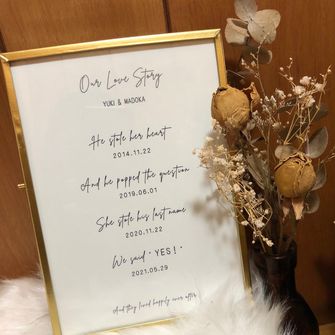 Our Love Story
YUKI & MADOKA
He stole her heart
2014.11.22
And he popped the question
2019.06.01
She stole his last name
2020.11.22
We said "YES!"
2021.05.29
And they lived happily ever after